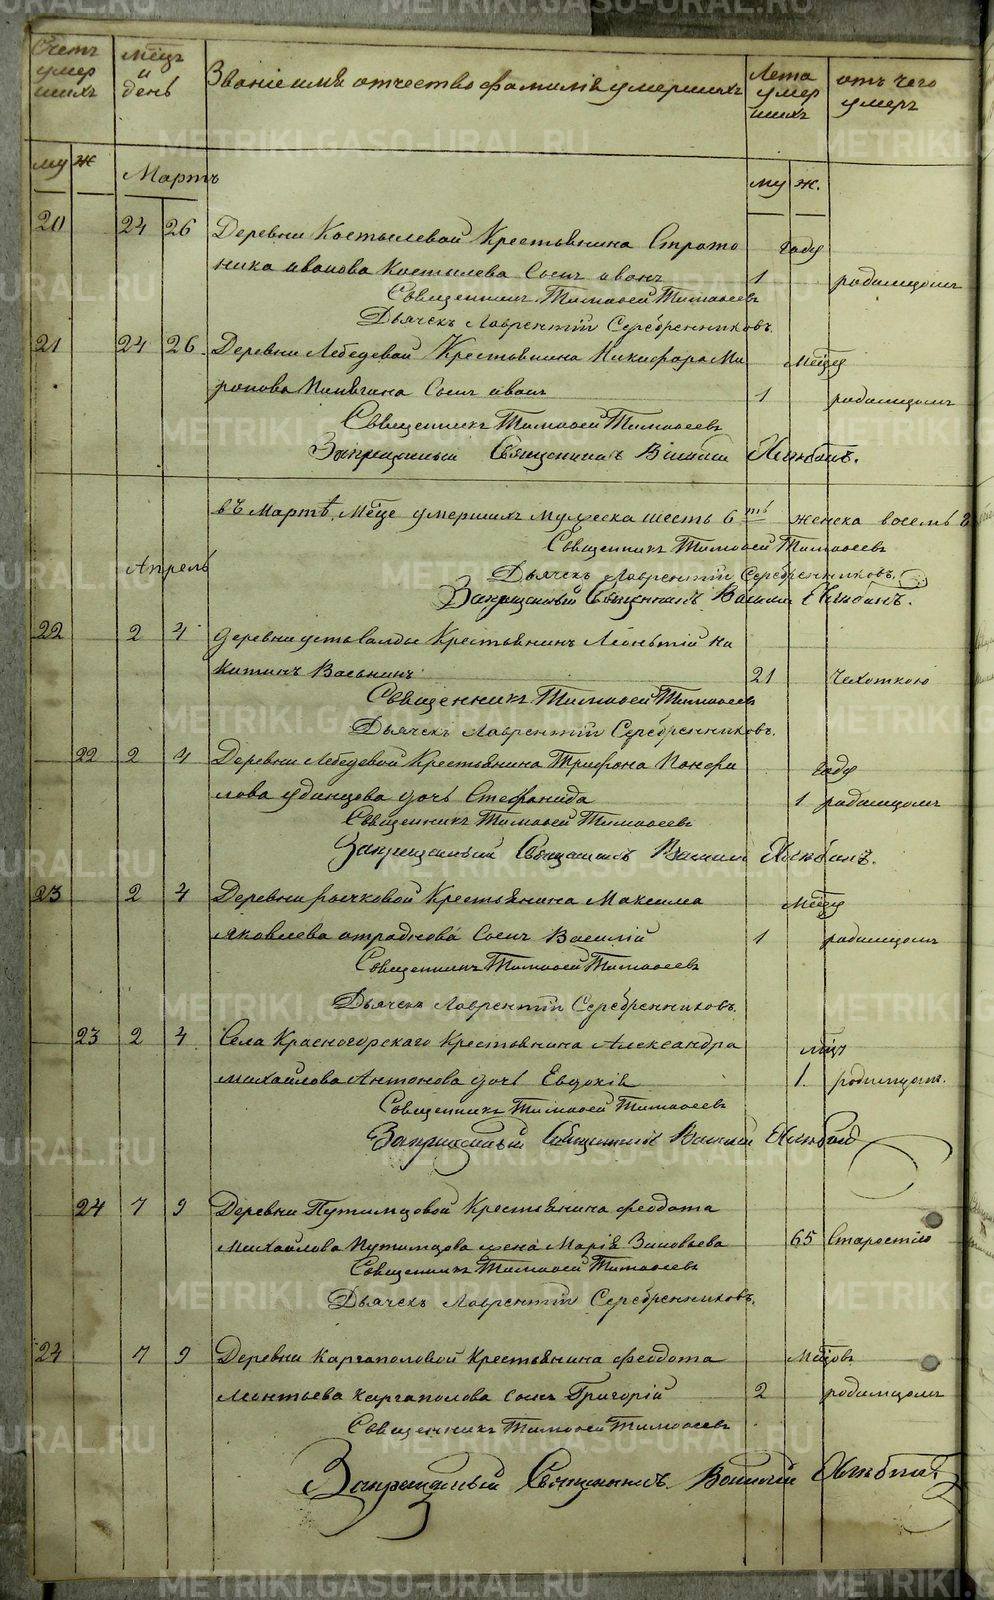 Счетъ умер шихъ
мѣцъ и день
Званіе имя отчество фамилія умершихъ
Лета умер шихъ
отъ чего умеръ
му ж
Мартъ
му ж.
20 24 26 Деревни Костылевой Крестьянина Страто году
ника иванова Костылева Сынъ иванъ 1 родимцомъ
Священникъ Тимофей Тимофеевъ
Дьячекъ Лаврентій Серебренниковъ.
21 24 26 Деревни Лебедевой Крестьянина Никифора Ми Мѣцу
ронова Сынъ иванъ 1 родимцомъ
Священникъ Тимофей Тимофеевъ
Запрещенный Священникъ Василій
въ Мартѣ Мѣце умершихъ мужеска шесть 6ть женска восемь 8
Священникъ Тимофей Тимофеевъ
Апрель
Дьячекъ Лаврентій Серебренниковъ.
Запрещенный Священникъ Василій
22 2 4 Деревни Крестьянинъ Леонтій Ни
китинъ 21 Чехоткою
Священникъ Тимофей Тимофеевъ
Дьячекъ Лаврентій Серебренниковъ.
22 2 4 Деревни Лебедевой Крестьянина Трифона Панфи году
лова удинцова дочь Стефанида 1 родимцомъ
Священникъ Тимофей Тимофеевъ
Запрещенный Священникъ Василій
23 2 4 Деревни рычковой Крестьянина Максима Мѣцу
яковлева отраднова Сынъ Василій 1 родимцомъ
Священникъ Тимофей Тимофеевъ
Дьячекъ Лаврентій Серебренниковъ.
23 2 4 Села Красногорскаго Крестьянина Александра мѣцъ
михайлова Антонова дочь Евдокія 1. родимцомъ.
Священникъ Тимофей Тимофеевъ
Запрещенный Священникъ Василій
24 7 9 Деревни Путимцовой Крестьянина феодота
Михайлова Путимцова жена Марія Зиновьева 65 Старостію
Священникъ Тимофей Тимофеевъ
Дьячекъ Лаврентій Серебренниковъ.
24 7 9 Деревни Каргаполовой Крестьянина феодота Мѣцовъ
Леонтьева Каргаполова сынъ Григорій 2 родимцомъ
Священникъ Тимофей Тимофеевъ
Запрещенный Священникъ Василій
METRIKI.GASO-URAL.RU